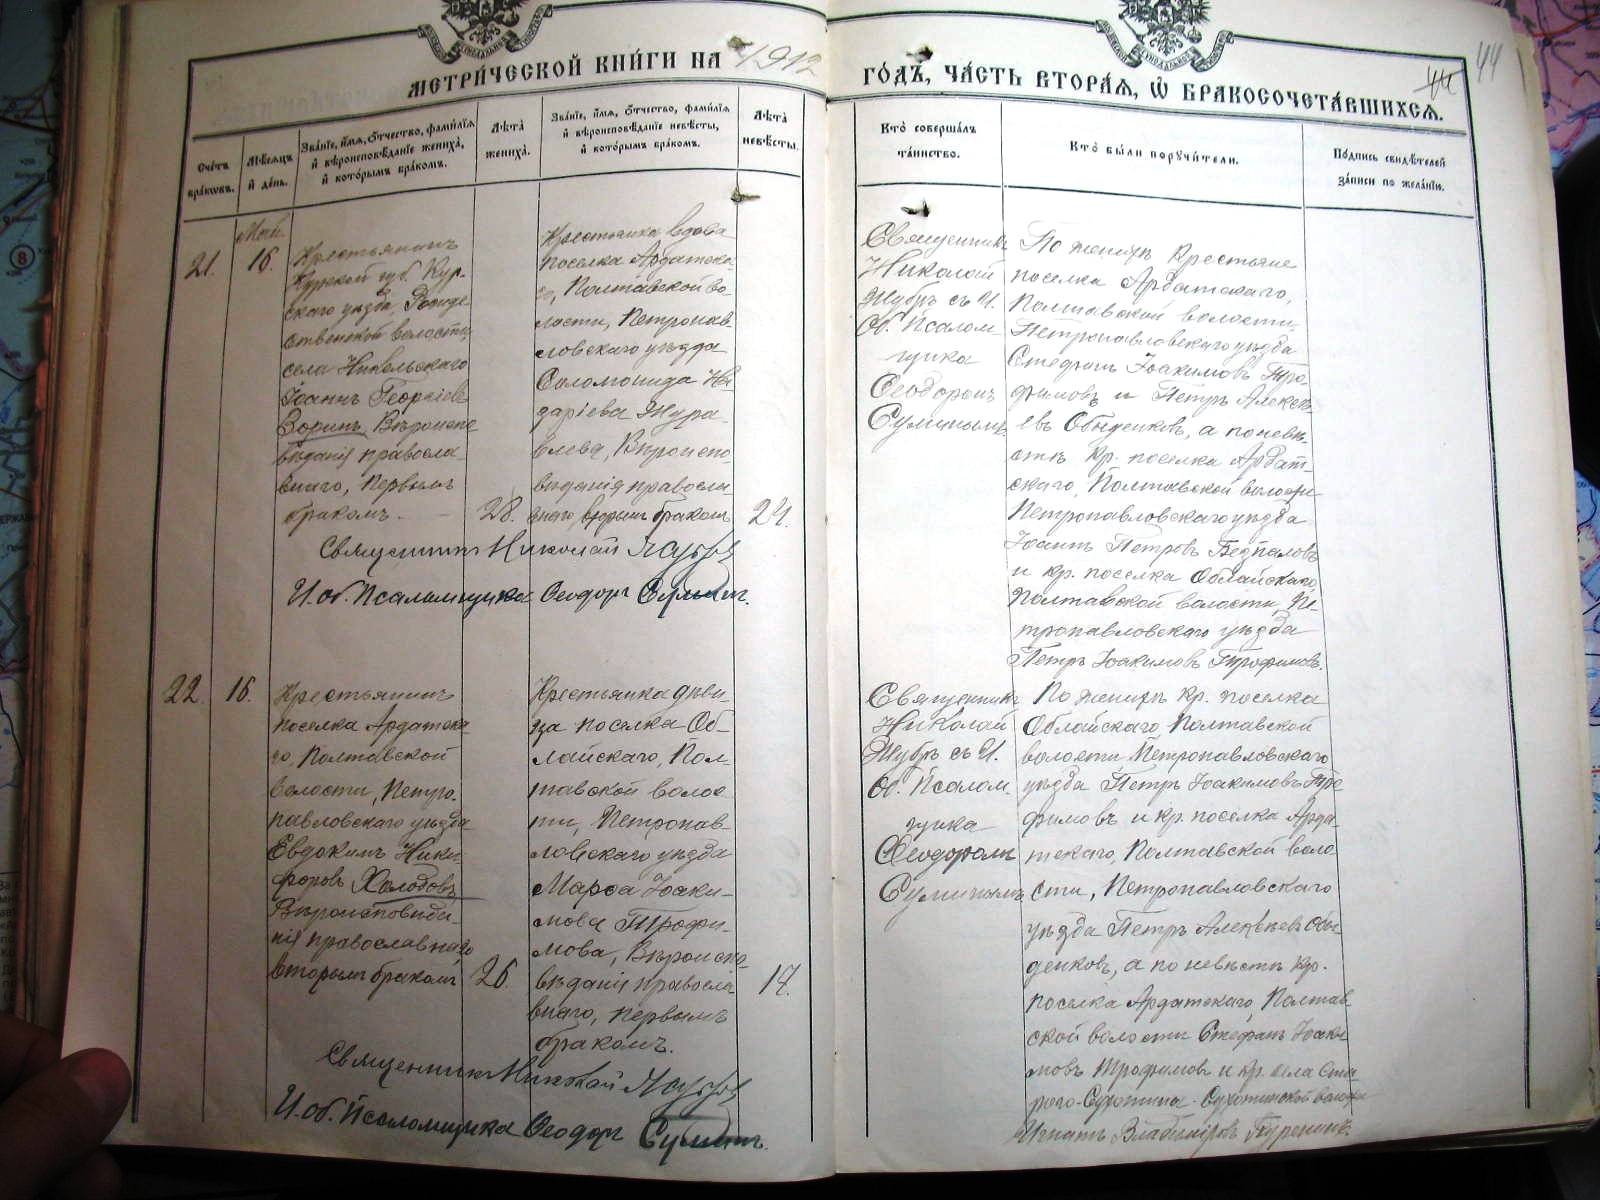 МЕТРИ́ЧЕСКОЙ КНИ́ГИ НА 1912
ГО́ДЪ, ЧА́СТЬ ВТОРА́Я, Ѡ БРАКОСОЧЕТА́ВШИХСЯ.
44
44
Сче́тъ
бра́ковъ.
Мѣ́сяцъ
и́ де́нь.
Зва́нїе, и́мя, о́тчество, фами́лїя
и́ вѣроисповѣ́данїе жениха́,
и́ кото́рымъ бра́комъ.
Лѣ́та
жениха́.
Зва́нїе, и́мя, о́тчество, фами́лїя
и́ вѣроисповѣ́данїе невѣ́сты,
и́ кото́рымъ бра́комъ.
Лѣ́та
невѣ́сты.
Кто̀ соверша́лъ
та́инство.
Кто̀ бы́ли поручи́тели.
По́дпись свидѣ́телей
за́писи по жела́нїю.
21.
Май.
16.
Крестьянинъ
Курской губ. Кур-
скаго уѣзда, Рожде
ственской волости,
села Никольскаго
Іоаннъ Георгіевъ
Зоринъ, Вѣроиспо
вѣданія правосла-
внаго, первымъ
бракомъ.
28.
Крестьянка вдова
поселка Ардатска-
го, Полтавской во-
лости, Петропав-
ловскаго уѣзда
Соломонида На
заріева Жура-
влева, Вѣроиспо-
вѣданія правосла-
внаго вторымъ бракомъ
24.
Священникъ
Николай
Жубръ съ И.
Об. Псалом
щика
Ѳеодоромъ
Сулимымъ
По женихѣ Крестьяне
поселка Ардатскаго,
Полтавской волости,
Петропавловскаго уѣзда
Стефанъ Іоакимовъ Тро-
фимовъ и Петръ Алексѣ
евъ Обыденковъ, а по невѣ-
стѣ Кр. поселка Ардат-
скаго, Полтавской волости
Петропавловскаго уѣзда
Іоаннъ Петровъ Безпаловъ
и кр. поселка Облайскаго
Полтавской волости, Пе-
тропавловскаго уѣзда
Петръ Іоакимовъ Трофимовъ.
Священникъ Николай Жубръ
И. об. Псаломщика Ѳеодоръ Сулимъ.
22.
16.
Крестьянинъ
поселка Ардатска
го, Полтавской
волости, Петро-
павловскаго уѣзда
Евдокимъ Ники-
форовъ Холодовъ
Вѣроисповѣда-
нія православнаго
вторымъ бракомъ
26.
Крестьянка дѣви-
ца поселка Об-
лайскаго, Пол-
тавской волос
ти, Петропав-
ловскаго уѣзда
Марѳа Іоаки-
мова Трофи-
мова, Вѣроиспо-
вѣданія правосла
внаго, первымъ
бракомъ.
17.
Священникъ
Николай
Жубръ съ И.
Об. Псалом-
щика
Ѳеодоромъ
Сулимымъ
По женихѣ кр. поселка
Облайскаго, Полтавской
волости, Петропавловскаго
уѣзда Петръ Іоакимовъ Тро
фимовъ и кр. поселка Арда-
тскаго, Полтавской воло-
сти, Петропавловскаго
уѣзда Петръ Алексѣевъ Обы
денковъ, а по невѣстѣ кр.
поселка Ардатскаго, Полтав
ской волости Стефанъ Іоаки
мовъ Трофимовъ и кр. села Ста
раго-Сухотина
Игнатъ Владиміровъ
Священникъ Николай Жубръ
И. об. Псаломщика Ѳеодоръ Сулимъ.